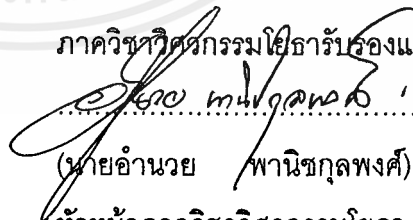 ภาควิชาวิศวกรรมโยธารับรองแ
(นายอำนวย พานิชกุลพงศ์)
หัวหน้าภาควิชาวิศวกรรมโยธา